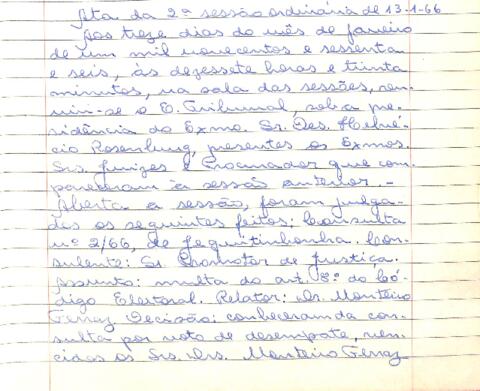 Ata da 2ª sessão ordinária de 13-1-66
Aos treze dias do mês de janeiro
de um mil novecentos e sessenta
e seis, às dezessete horas e trinta
minutos, na sala das sessões, reu-
niu-se o E. Tribunal, sob a pre-
sidência do Exmo. Sr. Des. Helvé-
cio Rosenburg, presentes os Exmos.
Srs. Juizes e Procurador que com-
pareceram à sessão anterior. -
Aberta a sessão, foram julga-
dos os seguintes feitos: Consulta
nº 2/66, de Jequitinhonha. Con-
sulente: Sr. Promotor de Justiça.
Assunto: multa do art. 8º do Có-
digo Eleitoral. Relator: Dr. Monteiro
Ferraz. Decisão: conheceram da con-
sulta por voto de desempate, ven-
cidos os Srs. Drs. Monteiro Ferraz